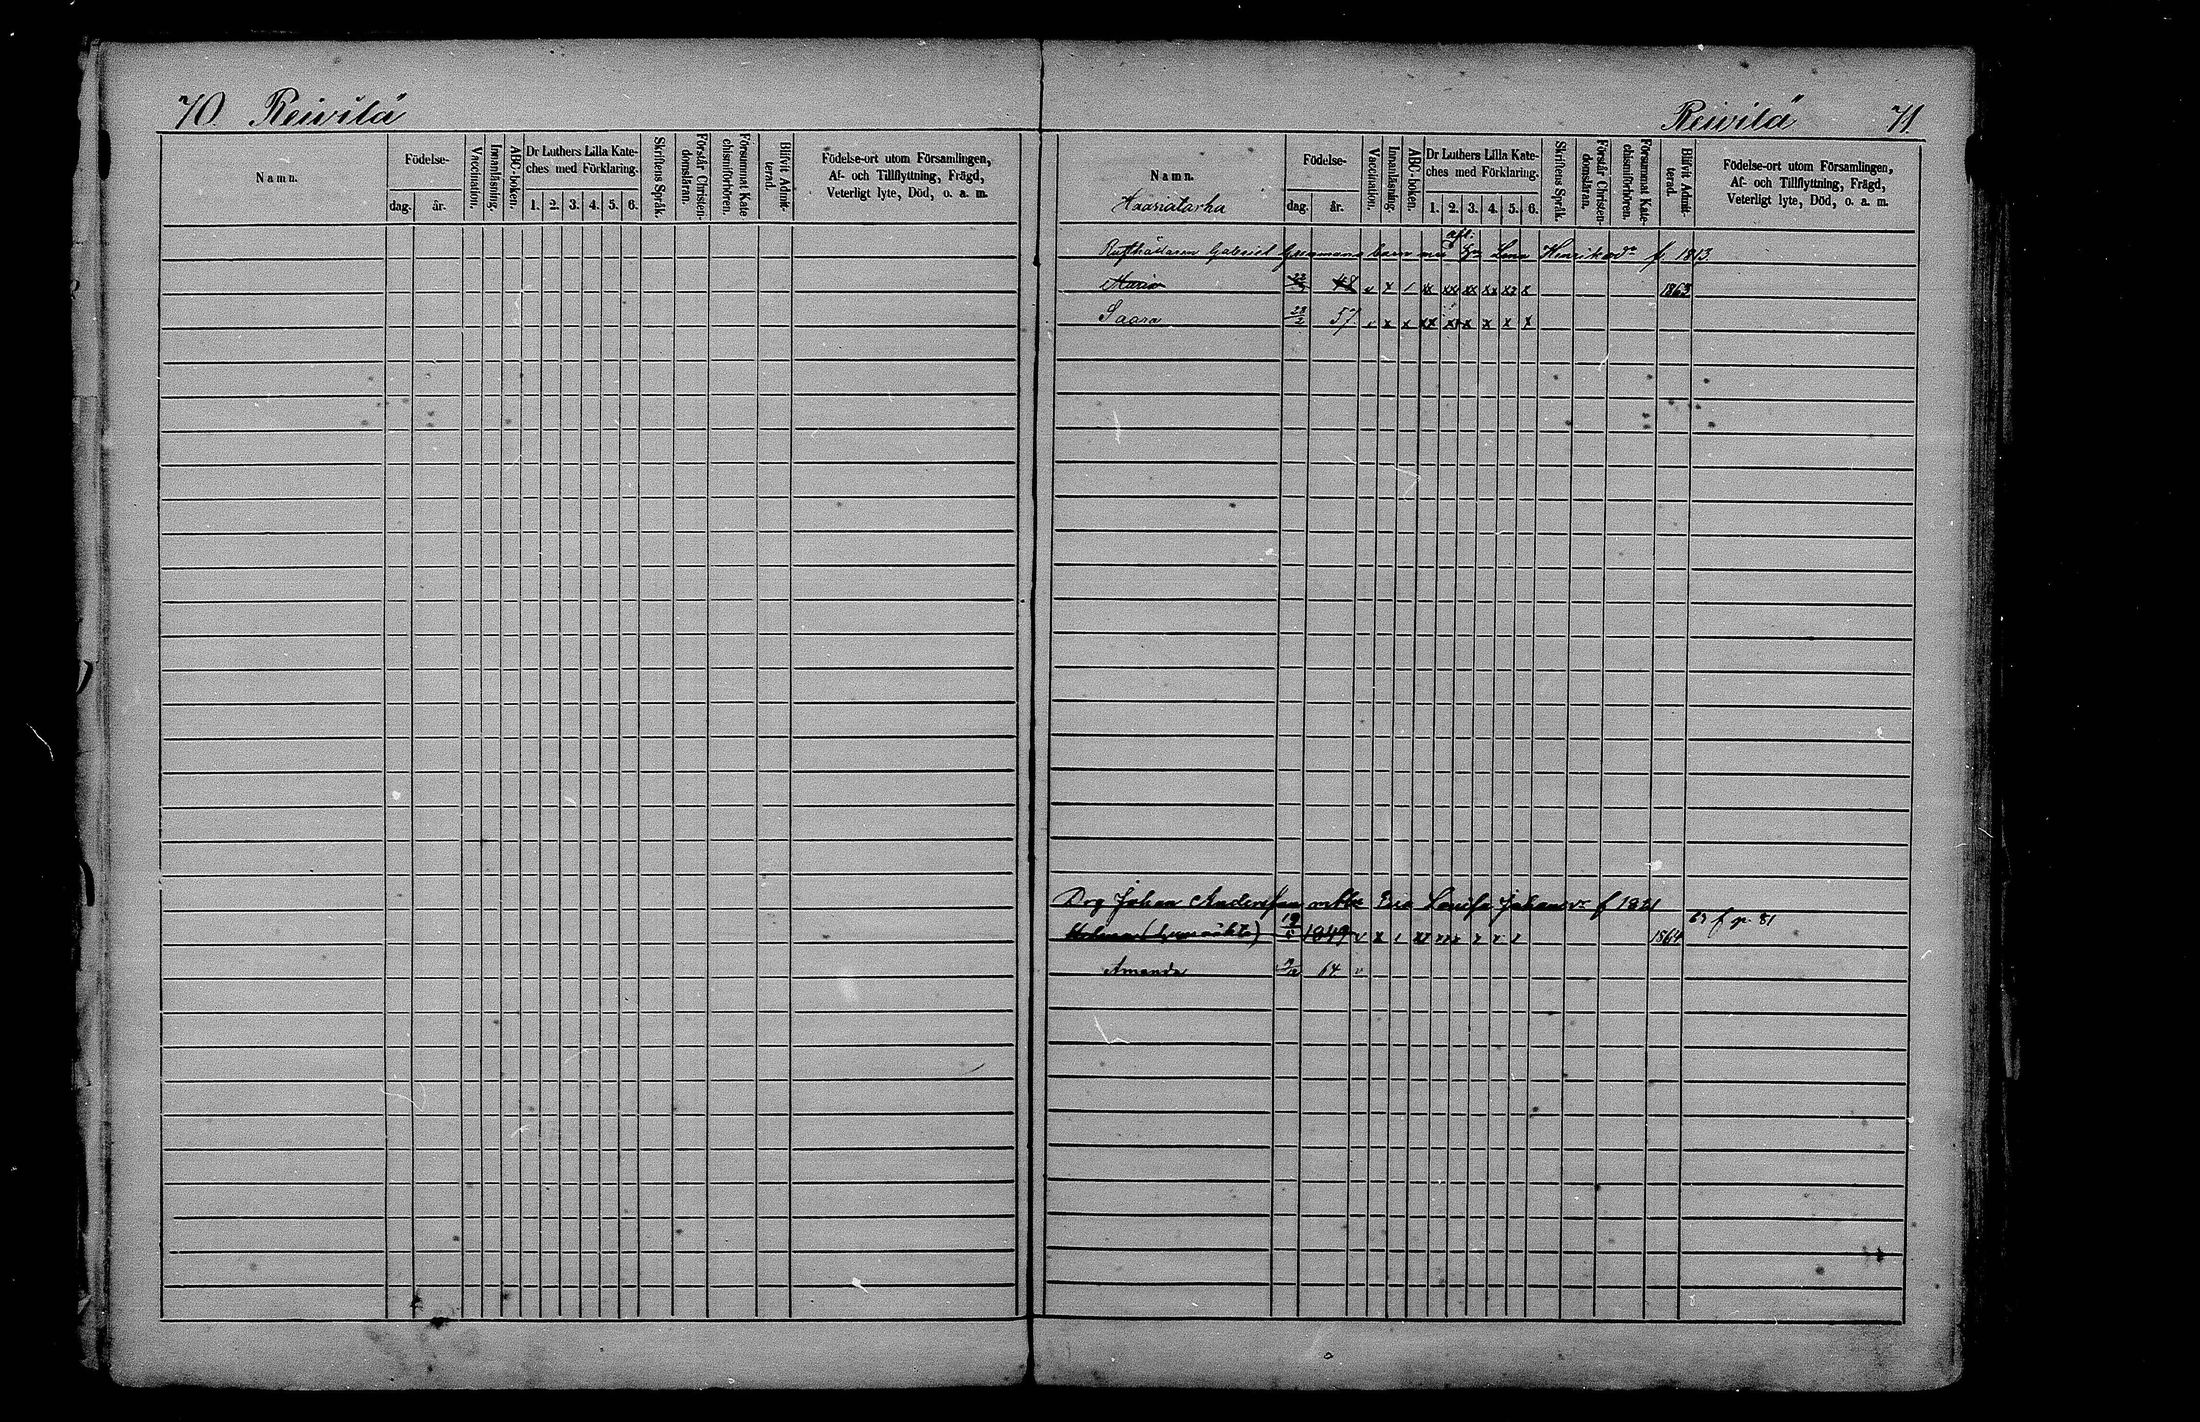 70. Reivilä
Namn.
Födelse-
dag. år.
Vaccination.
Innanläsning.
ABC-boken.
Dr Luthers Lilla Kate-
ches med Förklaring.
1. 2. 3. 4. 5. 6.
Skriftens Språk.
Förstår Christen-
domsläran.
Försummat Kate-
chismiförhören.
Blifvit Admit-
terad.
Födelse-ort utom Församlingen,
Af- och Tillflyttning, Frägd,
Veterligt lyte, Död, o. a. m.
Reivilä 71.
Namn.
Födelse-
dag. år.
Vaccination.
Innanläsning.
ABC-boken.
Dr Luthers Lilla Kate-
ches med Förklaring.
1. 2. 3. 4. 5. 6.
Skriftens Språk.
Förstår Christen-
domsläran.
Försummat Kate-
chismiförhören.
Blifvit Admit-
terad.
Födelse-ort utom Församlingen,
Af- och Tillflyttning, Frägd,
Veterligt lyte, Död, o. a. m.
Gabriel barn med Lena Henriksdr f. 1813
Maria 48 v x / xx xx xx xx xx x 1863
Saara 57 v x x xx xx x x x x
Drg Johan Andersson Eva Lovisa Johansdr f 1821
1849 v x 1864 f p. 81
Amanda 64 v